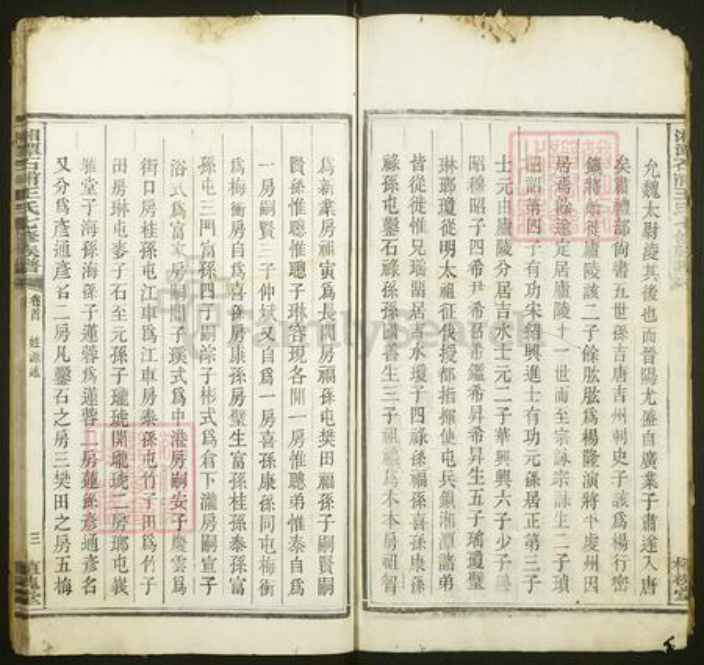 允魏太尉淩其後也而晉陽尤盛自廣業子肅遂入唐
矣肅禮部尚書五世孫吉唐吉州刺史子該為楊行密
鎮將始徙廬陵該二子餘肱肱為楊隆演將平虔州因
居焉後遂定居廬陵十一世而至宗詠宗詠生二子瓆
昭昭第四子有功宋紹興進士有功元孫居正第三子
士元由廬陵分居吉水士元二子華興興六子少子
昭穆昭子四希尹希呂希鑑希昇希昇生五子瑀瓊璧
琳瑯瓊從明太祖征俄授都指揮使屯兵鎮湘潭諸弟
皆從徙惟兄瑀留居吉水瓊子四祿孫福孫喜孫康孫
祿孫屯鑿石祿孫孫國喜生三子祖禮為木本房祖智
為新業房祖寅為長門房福孫屯樊田福孫子嗣賢嗣
賢孫惟聰惟聰子琳容現各開一房惟聰弟惟泰自為
一房嗣賢三子仲斌又自為一房喜孫康孫同屯梅衝
為梅衝房自為喜孫房康孫房璧生富孫桂孫泰孫富
孫屯三門富孫四子嗣宗子彬式為倉下瀧房嗣宣子
浴式為富家房嗣間子瑛式為中港房嗣安子慶雲為
街口房桂孫屯江車為江車房泰孫屯竹子田為竹子
田房琳屯麥子石至元孫子瓏琥開瓏琥二房瑯屯峩
雅堂子海孫海孫子蓮蓉為蓮蓉二房蓮孫彥通彥名
又分為彥通彥名二房凡鑿石之房三樊田之房五梅
湘潭石浦王氏七修族譜
卷首
姓源述
三
植槐堂